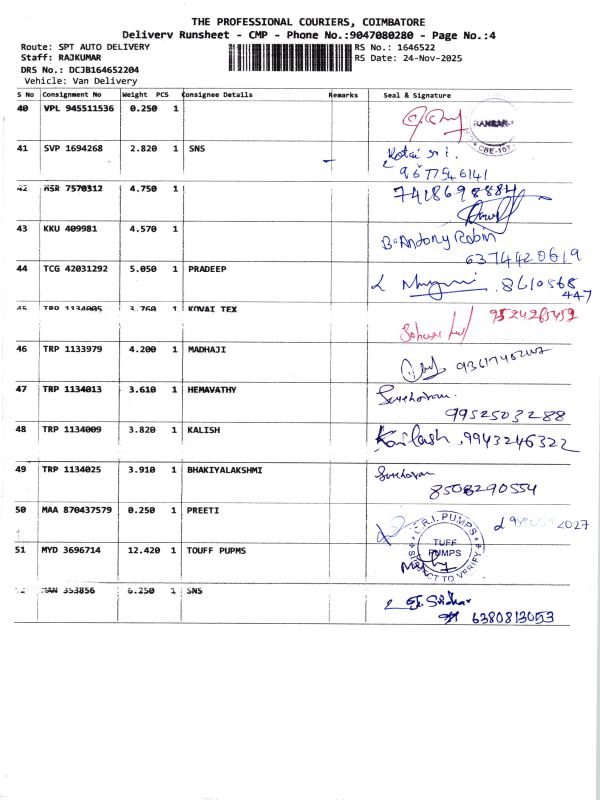 THE PROFESSIONAL COURIERS, COIMBATORE
Delivery Runsheet - CMP - Phone No.:9047080280 - Page No.:4
Route: SPT AUTO DELIVERY
RS No.: 1646522
Staff: RAJKUMAR
RS Date: 24-Nov-2025
DRS No.: DCJB164652204
Vehicle: Van Delivery
S No Consignment No Weight PCS Consignee Details Remarks Seal & Signature
40 VPL 945511536 0.250 1
41 SVP 1694268 2.820 1 SNS
9677546141
42 MSR 7570312 4.750 1 7418698884
43 KKU 409981 4.570 1
B. Antony Robin
6374420619
44 TCG 42031292 5.050 1 PRADEEP
8610568
447
45 TRP 1134005 3.760 1 KOVAI TEX
9524265459
46 TRP 1133979 4.200 1 MADHAJI
47 TRP 1134013 3.610 1 HEMAVATHY
9952503288
48 TRP 1134009 3.820 1 KALISH Kailash, 9943246322
49 TRP 1134025 3.910 1 BHAKIYALAKSHMI
8508290554
50 MAA 870437579 0.250 1 PREETI
51 MYD 3696714 12.420 1 TOUFF PUPMS
C.R.I. PUMPS
TUFF
PUMPS
SUBJECT TO VERIFY
MAN 353856 6.250 1 SNS
6380813053